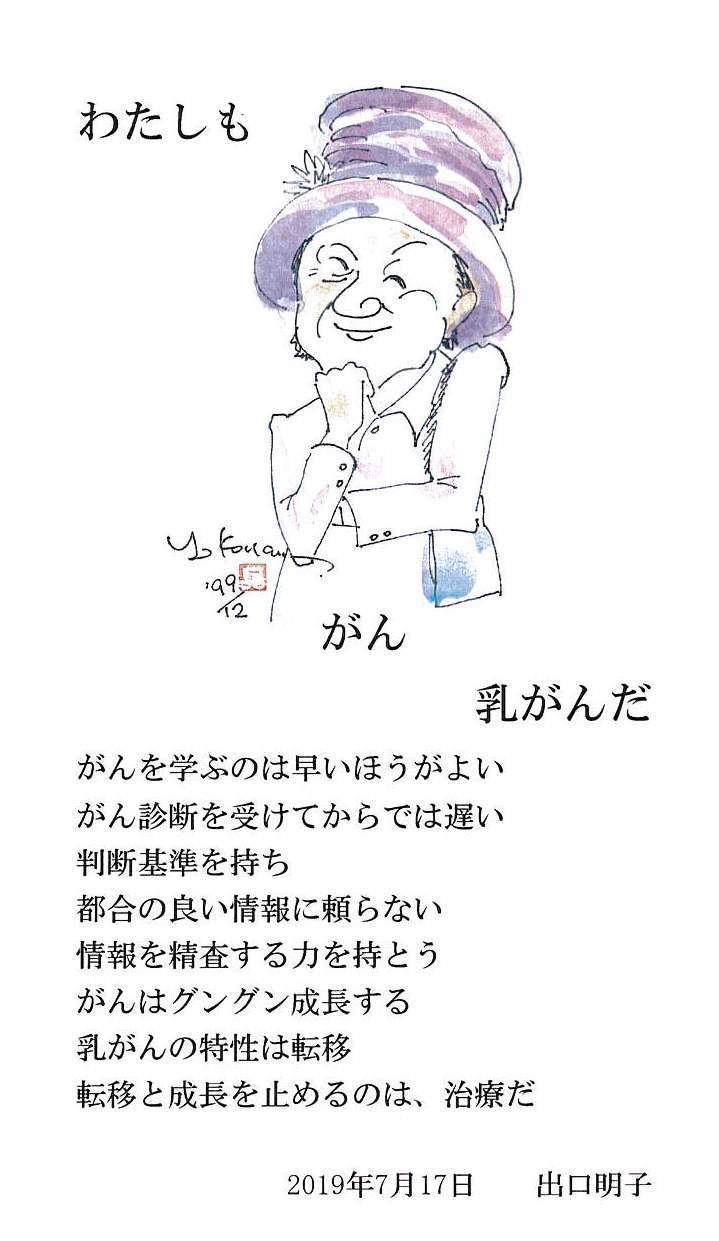 わたしも
'99
12
がん
乳がんだ
がんを学ぶのは早いほうがよい
がん診断を受けてからでは遅い
判断基準を持ち
都合の良い情報に頼らない
情報を精査する力を持とう
がんはグングン成長する
乳がんの特性は転移
転移と成長を止めるのは、治療だ
2019年7月17日　出口明子